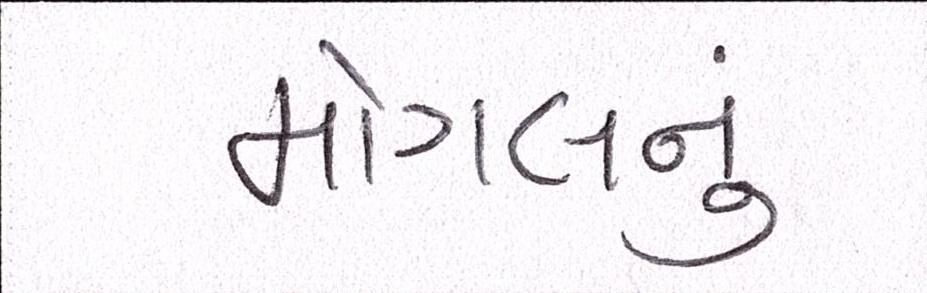 મોગલનું